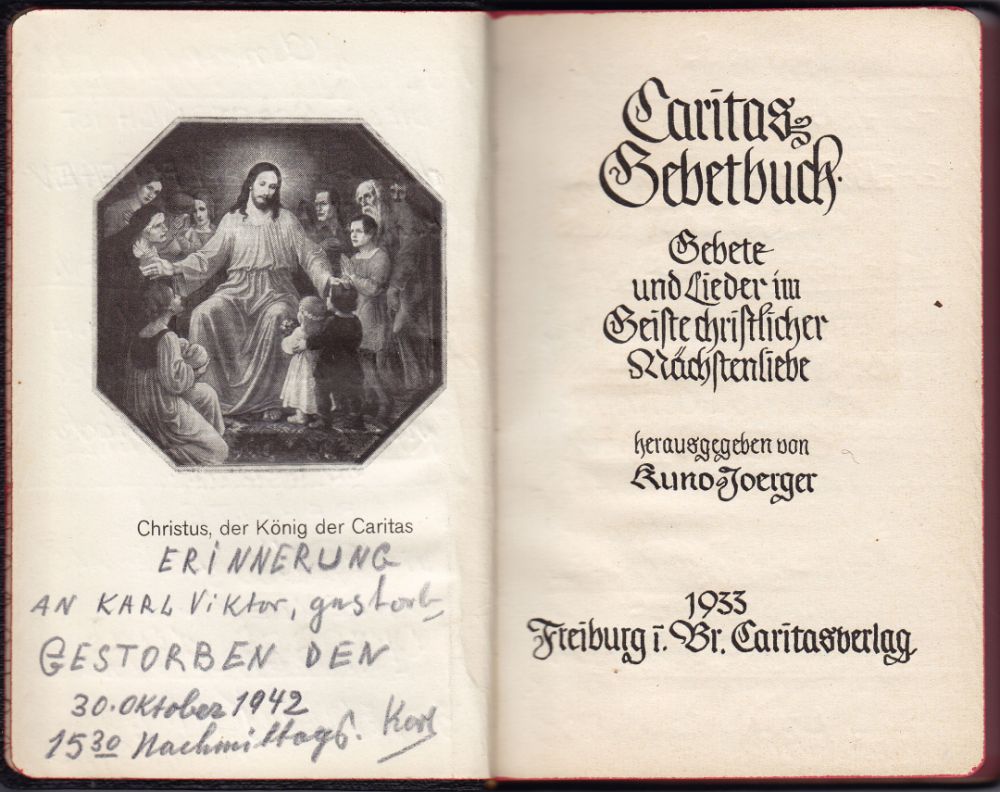 Christus, der König der Caritas
ERINNERUNG
AN KARL Viktor, gestorb
GESTORBEN DEN
30. Oktober 1942
15 30 Nachmittags. Karl
Caritas=
Gebetbuch.
Gebete
und Lieder im
Geiste christlicher
Nächstenliebe
herausgegeben von
Kuno Joerger
1933
Freiburg i. Br. Caritasverlag